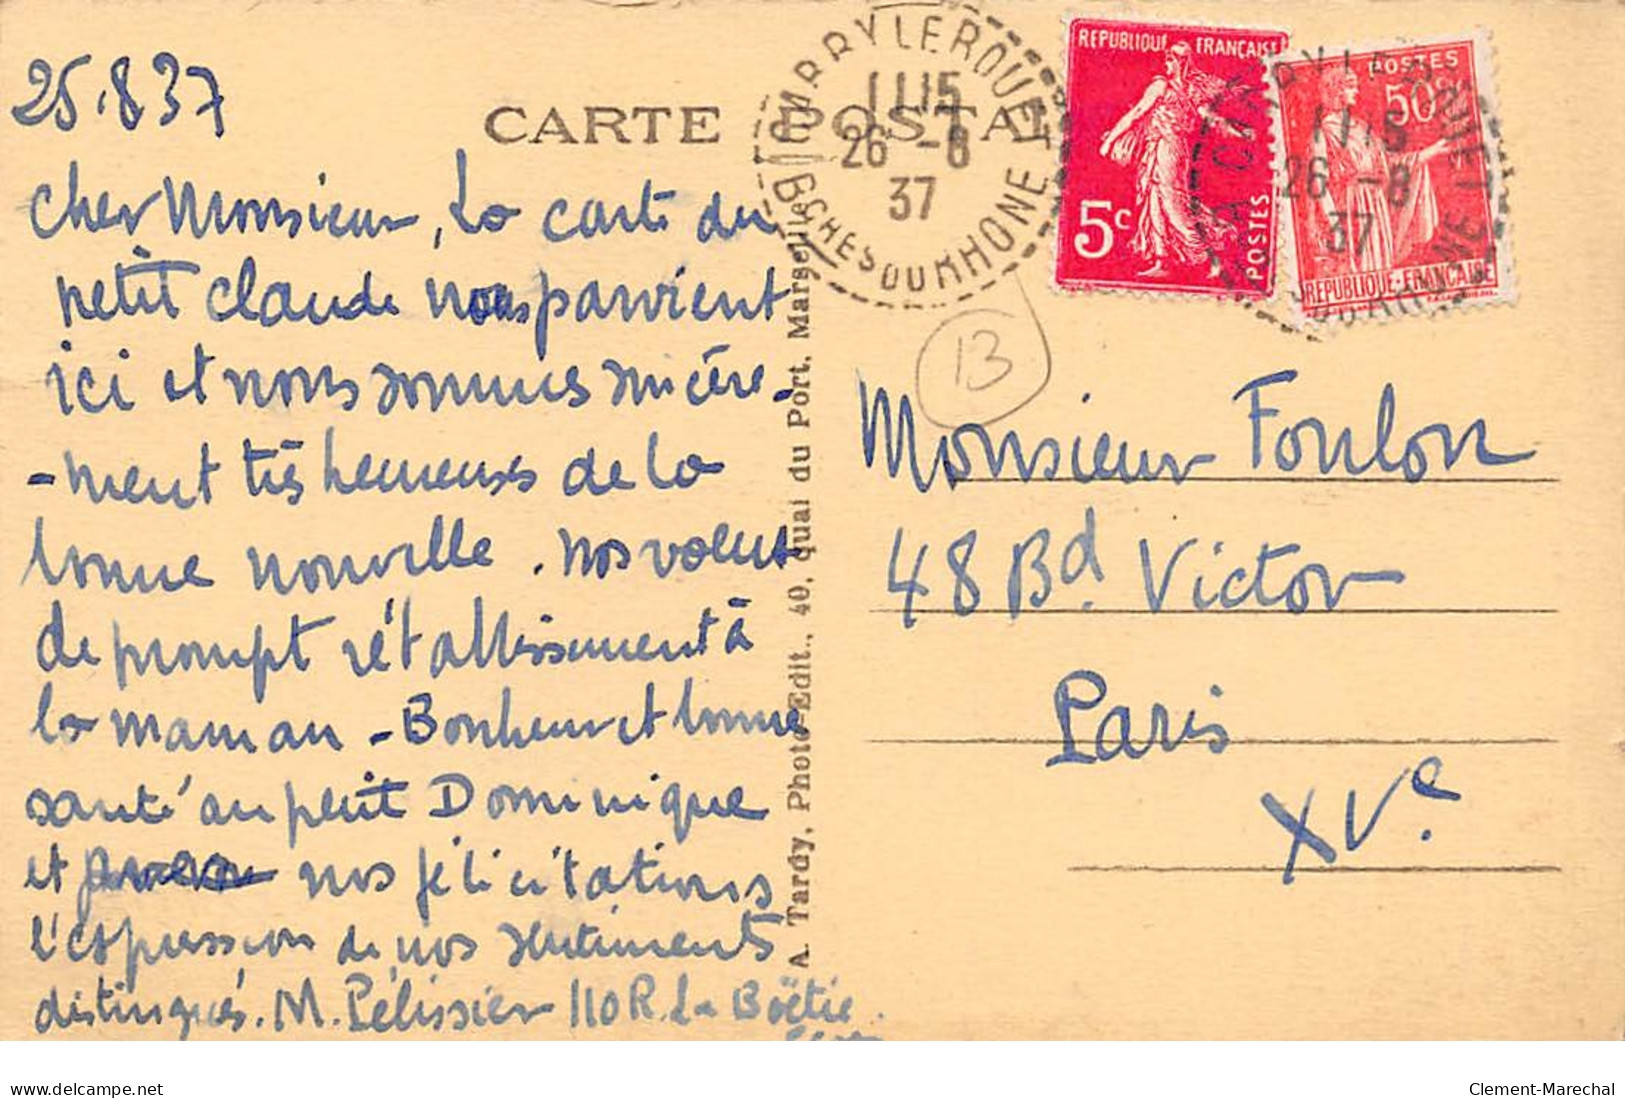 25.8 37
CARTE POSTALE
Cher Monsieur, La carte du
petit claude nous parvient
ici et nous sommes sincère-
-ment très heureuses de la
bonne nouvelle. nos voeux
de prompt rétablissement à
la maman - Bonheur et bonne
santé au petit Dominique
et nos félicitations
l'expression de nos sentiments
distingués. M. Pélissier 110 R. La Boëtie
A. Tardy, Photo-Edit., 40, quai du Port, Marseille
CARRY LE ROUET
11 15
26 -8
37
BCHES DU RHONE
REPUBLIQUE FRANÇAISE
5c
POSTES
POSTES
50c
11 15
26 -8
37
REPUBLIQUE-FRANÇAISE
13
Monsieur Foulon
48 Bd. Victor
Paris
XVe.
delcampe.net
Clement-Marechal